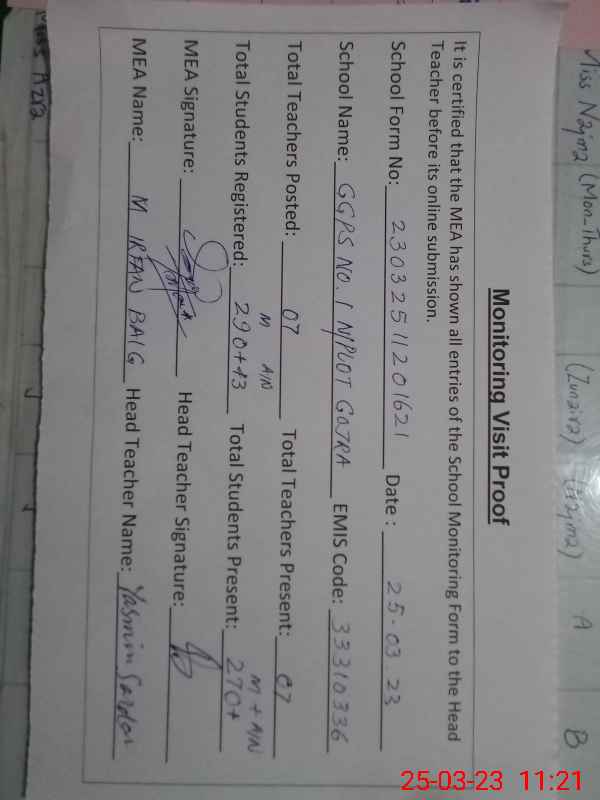 Miss Najma (Mon-Thurs)
(Zunaira) (Najma) A B
Monitoring Visit Proof
It is certified that the MEA has shown all entries of the School Monitoring Form to the Head
Teacher before its online submission.
School Form No: 23032511201621 Date : 25-03-23
School Name: GGPS NO. 1 N/PLOT GOJRA EMIS Code: 33310336
Total Teachers Posted: 07 Total Teachers Present: 07
M A/N M + A/N
Total Students Registered: 290+43 Total Students Present: 270+
MEA Signature: Head Teacher Signature:
MEA Name: M IRFAN BAIG Head Teacher Name: Yasmin Sardar
Miss Azra
25-03-23 11:21